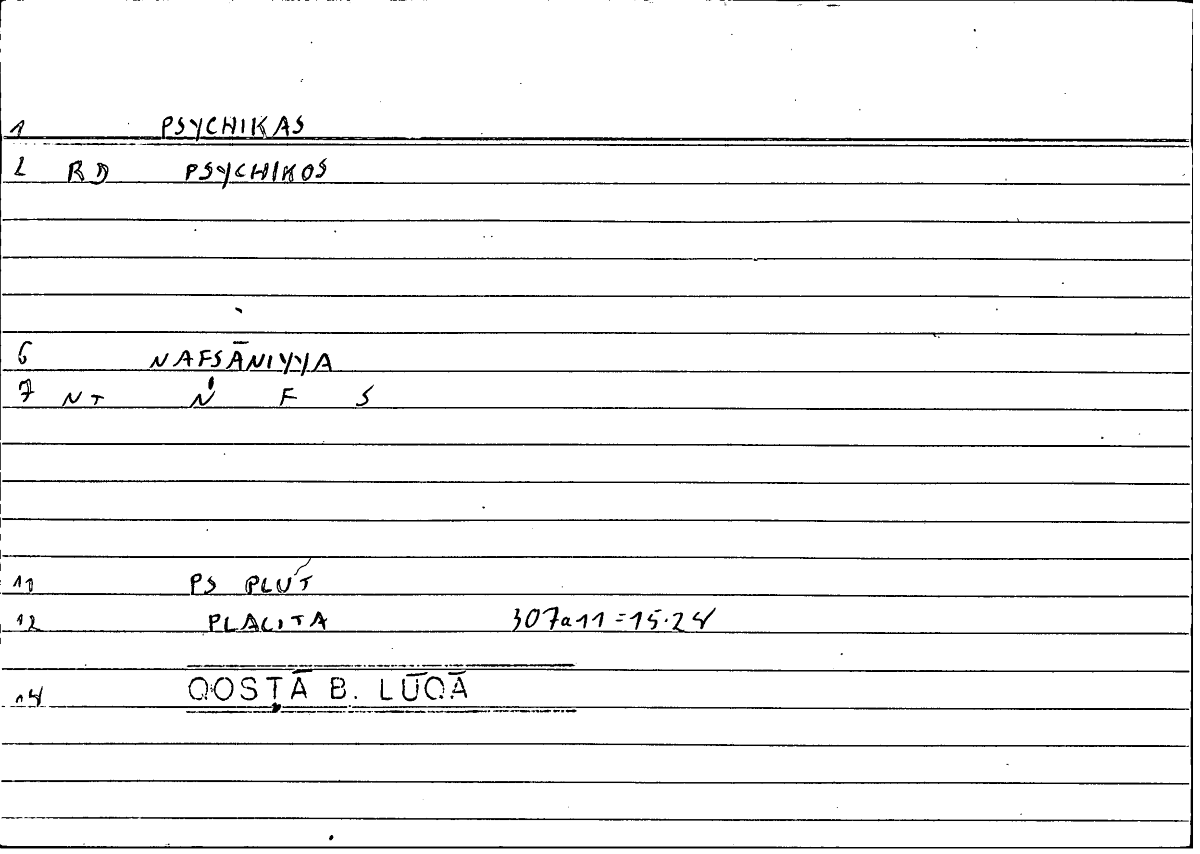 1 PSYCHIKAS
2 RD PSYCHIKOS
6 NAFSĀNIYYA
7 NT N F S
11 PS PLUT
12 PLACITA 307a11=15.24
14 QOSṬĀ B. LŪQĀ